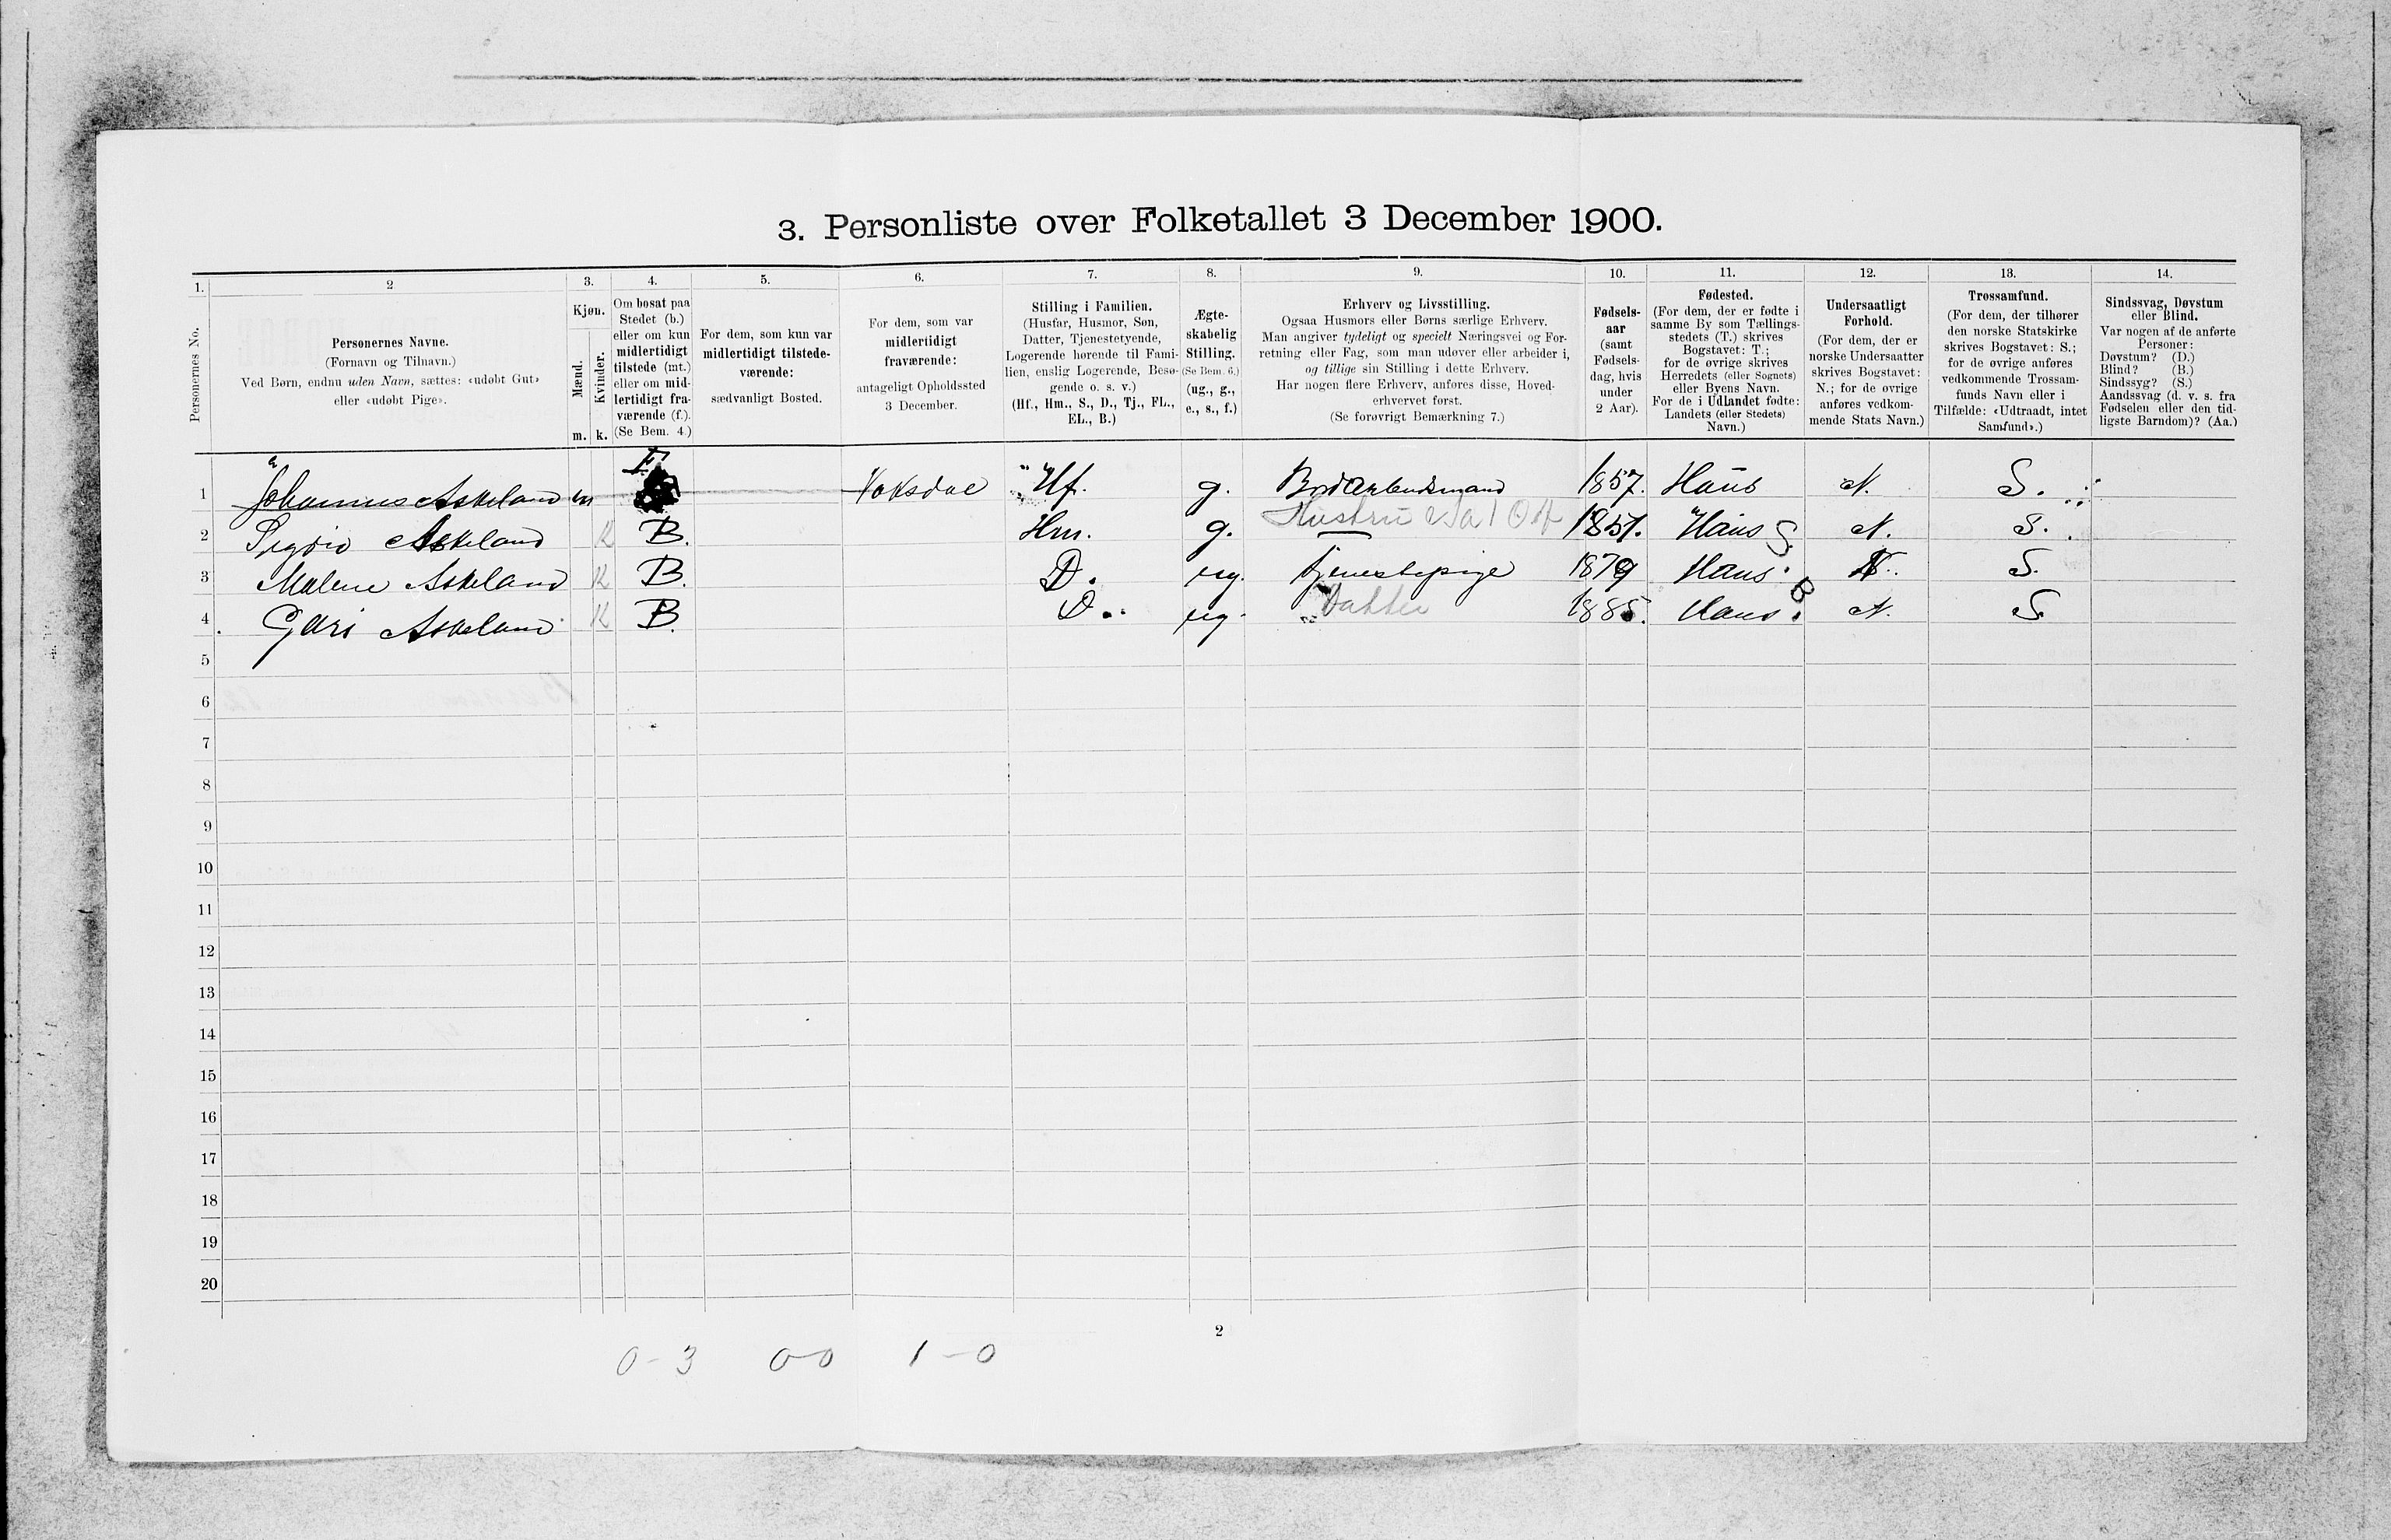 3. Personliste over Folketallet 3 December 1900.
1. 2 3. 4. 5. 6. 7. 8. 9. 10. 11. 12. 13. 14.
Personernes No.
Personernes Navne.
(Fornavn og Tilnavn.)
Ved Børn, endnu uden Navn, sættes: «udøbt Gut»
eller «udøbt Pige».
Kjøn.
Mænd.
Kvinder.
m. k.
Om bosat paa
Stedet (b.)
eller om kun
midlertidigt
tilstede (mt.)
eller om mid-
lertidigt fra-
værende (f.).
(Se Bem. 4.)
For dem, som kun var
midlertidigt tilstede-
værende:
sædvanligt Bosted.
For dem, som var
midlertidigt
fraværende:
antageligt Opholdssted
3 December.
Stilling i Familien.
(Husfar, Husmor, Søn,
Datter, Tjenestetyende,
Logerende hørende til Fami-
lien, enslig Logerende, Besø-
gende o. s. v.)
(Hf., Hm., S., D., Tj., FL.,
EL., B.)
Ægte-
skabelig
Stilling.
(Se Bem. 6.)
(ug., g.,
e., s., f.)
Erhverv og Livsstilling.
Ogsaa Husmors eller Børns særlige Erhverv.
Man angiver tydeligt og specielt Næringsvei og For-
retning eller Fag, som man udøver eller arbeider i,
og tillige sin Stilling i dette Erhverv.
Har nogen flere Erhverv, anføres disse, Hoved-
erhvervet først.
(Se forøvrigt Bemærkning 7.)
Fødsels-
aar
(samt
Fødsels-
dag, hvis
under
2 Aar).
Fødested.
(For dem, der er fødte i
samme By som Tællings-
stedets (T.) skrives
Bogstavet: T.;
for de øvrige skrives
Herredets (eller Sognets)
eller Byens Navn.
For de i Udlandet fødte:
Landets (eller Stedets)
Navn.)
Undersaatligt
Forhold.
(For dem, der er
norske Undersaatter
skrives Bogstavet:
N.; for de øvrige
anføres vedkom-
mende Stats Navn.)
Trossamfund.
(For dem, der tilhører
den norske Statskirke
skrives Bogstavet: S.;
for de øvrige anføres
vedkommende Trossam-
funds Navn eller i
Tilfælde: «Udtraadt, intet
Samfund».)
Sindssvag, Døvstum
eller Blind.
Var nogen af de anførte
Personer:
Døvstum? (D.)
Blind? (B.)
Sindssyg? (S.)
Aandssvag (d. v. s. fra
Fødselen eller den tid-
ligste Barndom)? (Aa.)
1 Johannes Askeland m F Vaksdal Hf. g. 1857. Haus N. S.
2 Sigvid Askeland K B. Hm. g. Hustru 1851. Haus S. N. S.
3 Malene Askeland K B. D. ug. tjenestepige 1879 Haus. N. S.
4 Guri Askeland K B. D. ug. Datter 1885. Haus. N. S
5
6
7
8
9
10
11
12
13
14
15
16
17
18
19
20
2
0-3 00 1-0